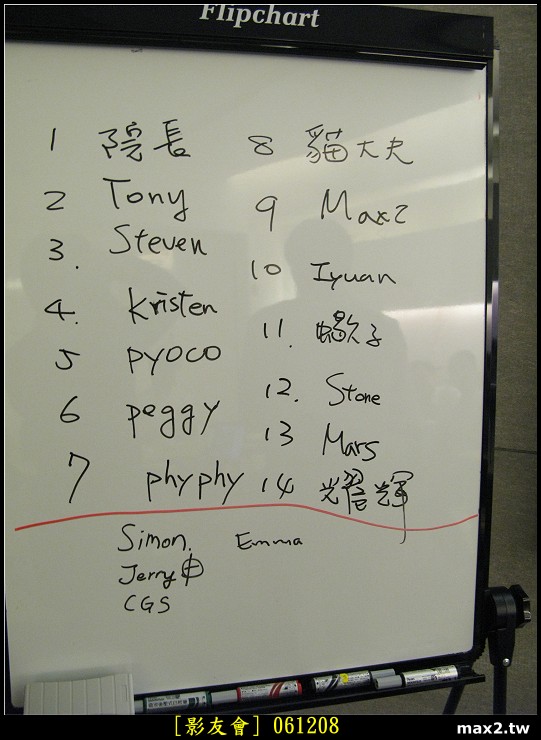 Flipchart
1 院長
2 Tony
3. Steven
4. Kristen
5 pyoco
6 peggy
7 phyphy
8 貓大夫
9 Max2
10 Iyuan
11. 蠍子
12. Stone
13 Mars
14
Simon. Emma
Jerry
CGS
[影友會] 061208
max2.tw